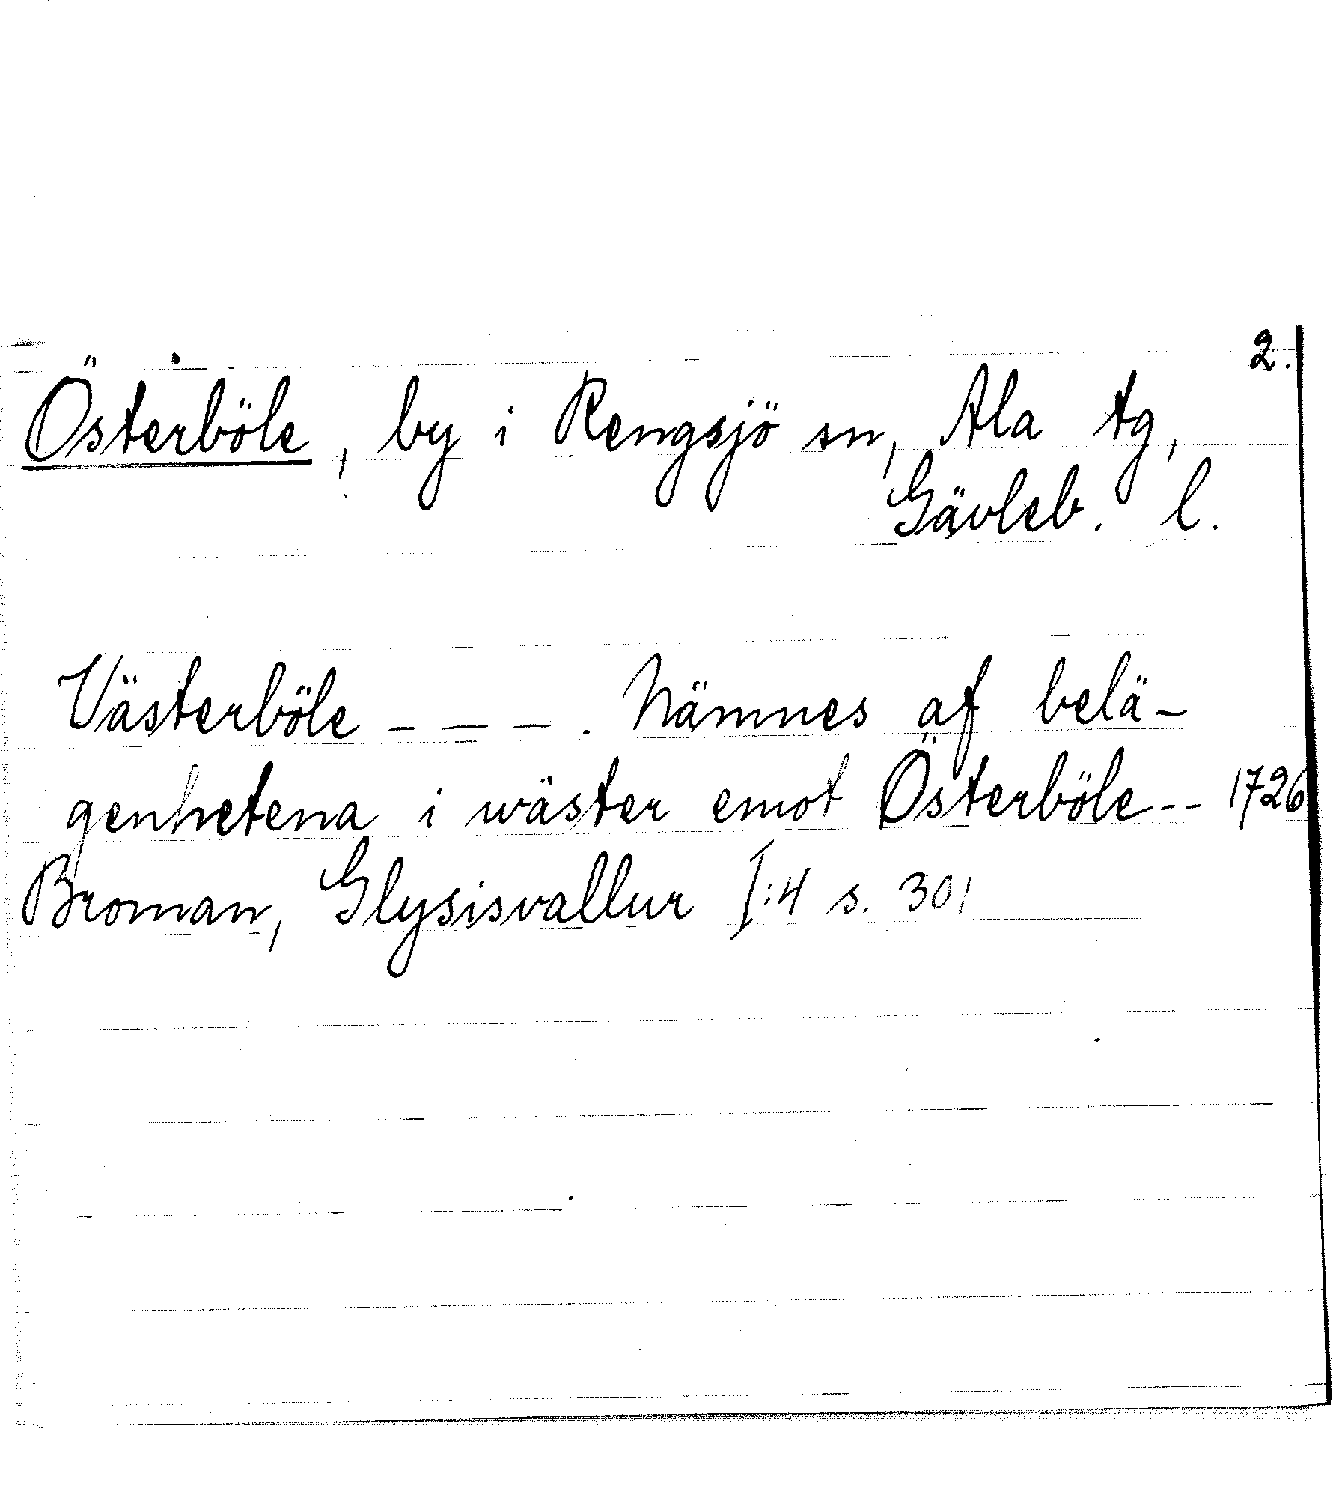 2.
Österböle, by i Rengsjö sn, Ala tg,
Gävleb. l.
Västerböle - - - . Nämnes af belä-
genhetena i wäster emot Österböle -- 1726
Broman, Glysisvallur I:4 s. 301